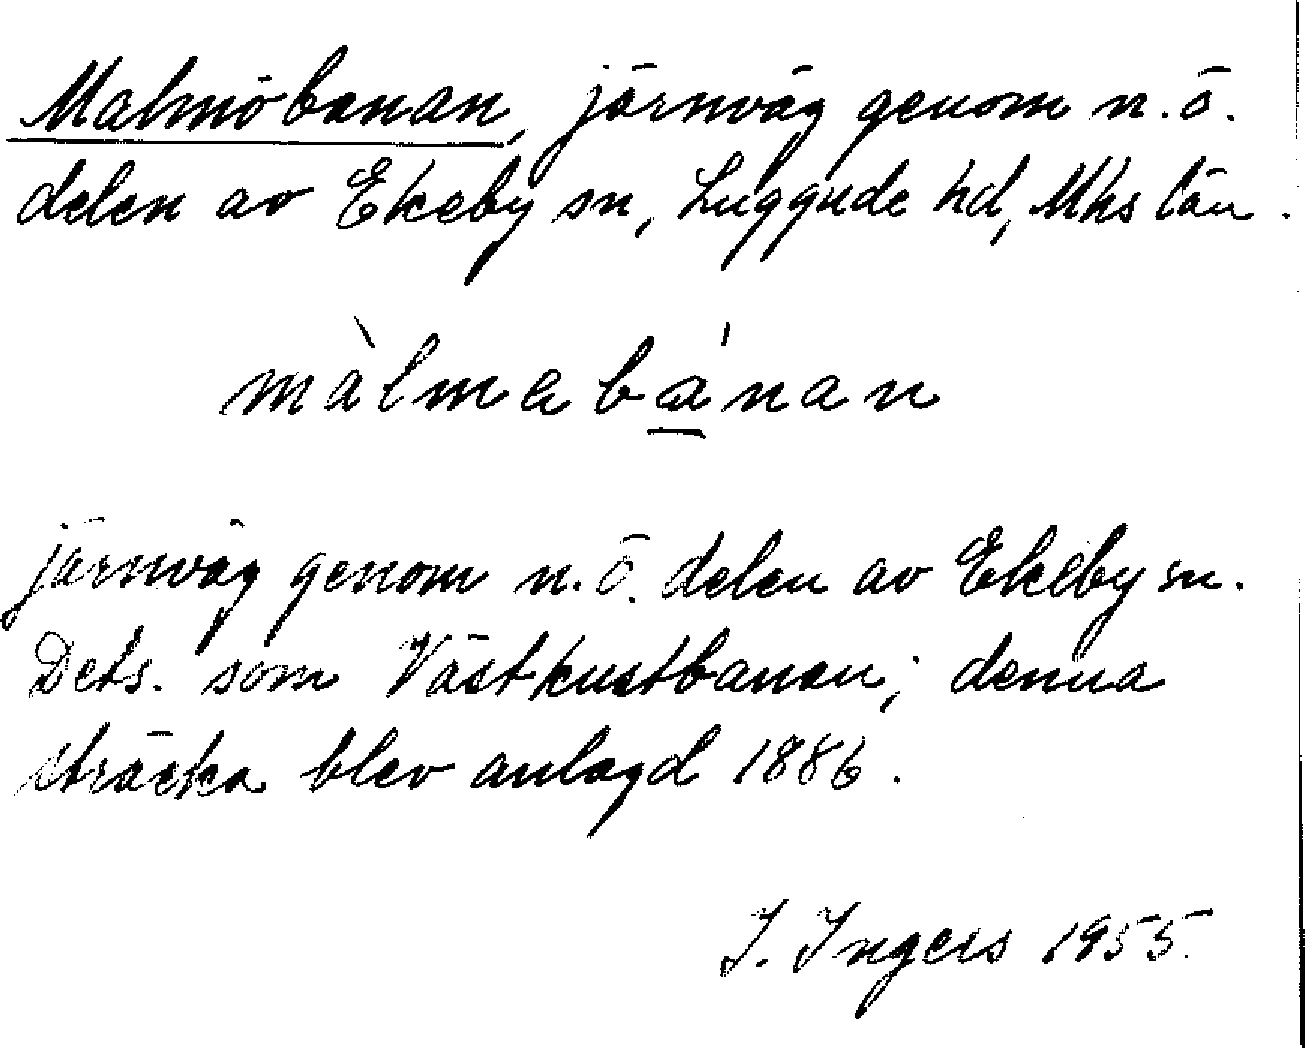 Malmöbanan, järnväg genom n.ö.
delen av Ekeby sn, Luggude hd, Mhs län.
màlmabánan
järnväg genom n.ö. delen av Ekeby sn.
Dets. som Västkustbanan; denna
sträcka blev anlagd 1886.
I. Ingers 1955.